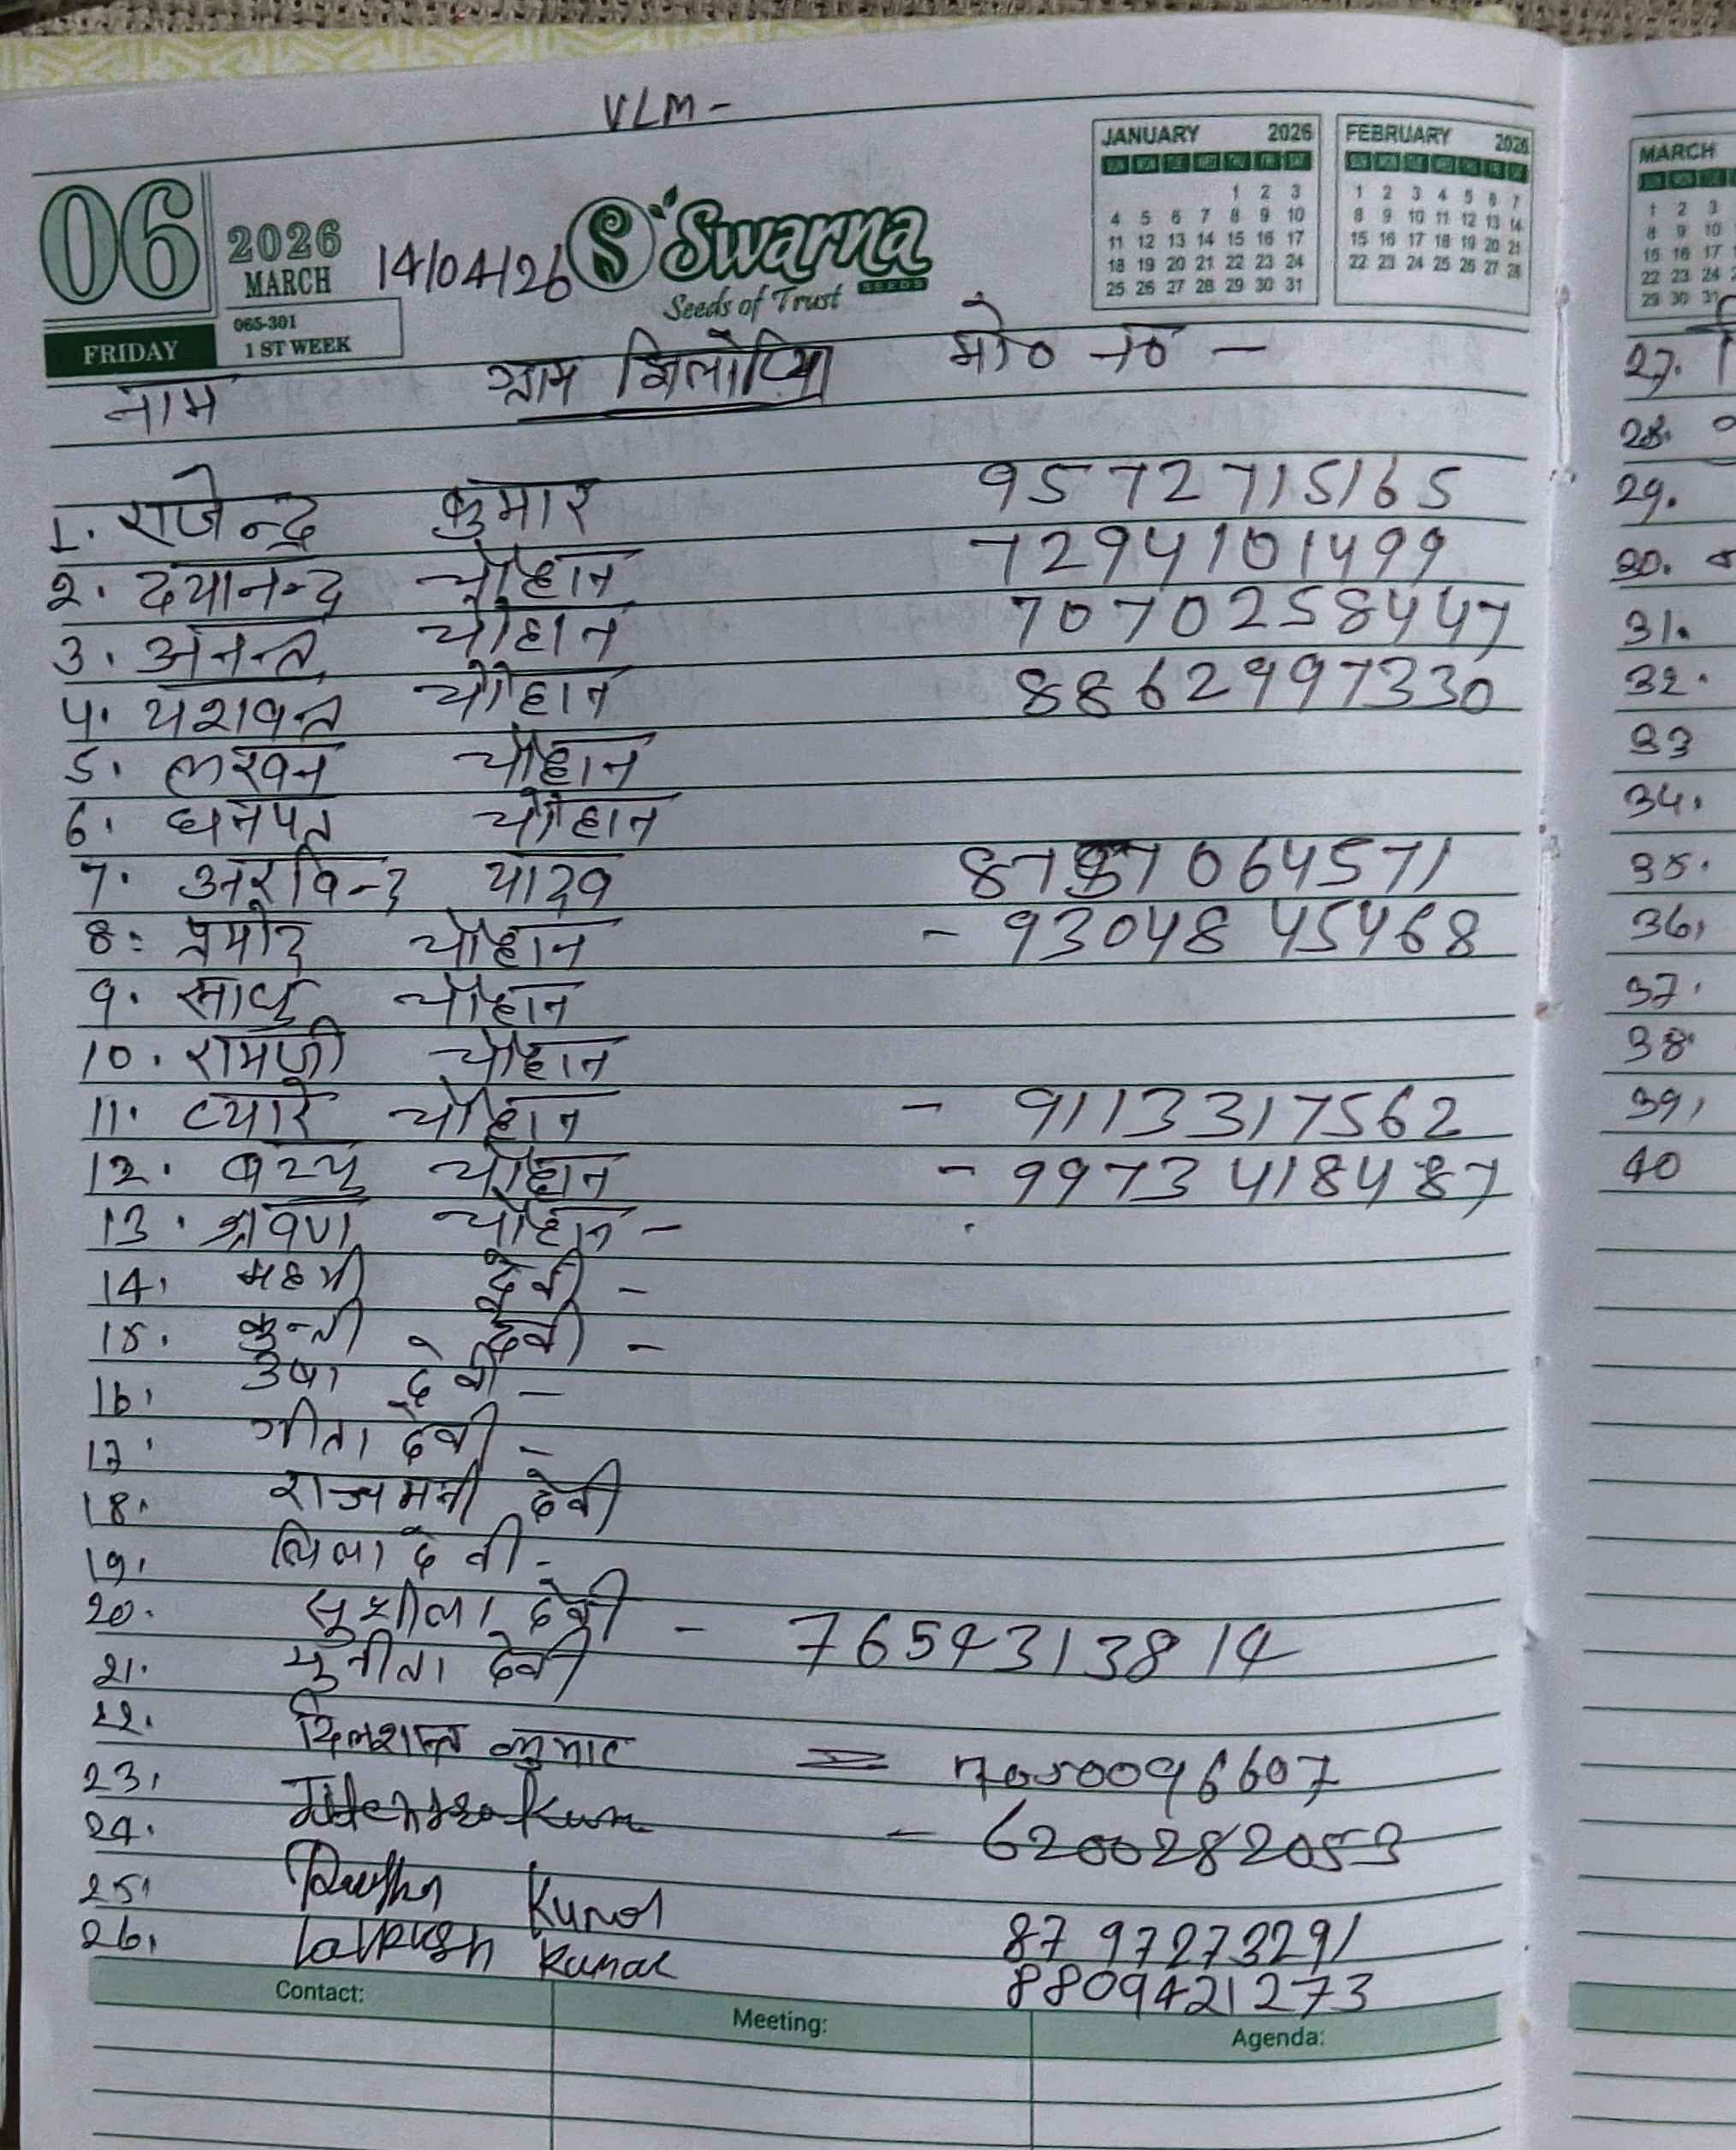 VLM -
06
2026
MARCH
14/04/26
S Swarna
SEEDS
Seeds of Trust
065-301
1 ST WEEK
FRIDAY
JANUARY 2026
SUN MON TUE WED THU FRI SAT
1 2 3
4 5 6 7 8 9 10
11 12 13 14 15 16 17
18 19 20 21 22 23 24
25 26 27 28 29 30 31
FEBRUARY 2026
SUN MON TUE WED THU FRI SAT
1 2 3 4 5 6 7
8 9 10 11 12 13 14
15 16 17 18 19 20 21
22 23 24 25 26 27 28
नाम ग्राम मो० न० -
1. राजेन्द्र कुमार 9572715165
2. दयानन्द चौहान 7294101499
3. अनन्त चौहान 7070258447
4. यशवन्त चौहान 8862997330
5. लखन चौहान
6. धनपत चौहान
7. अरविन्द यादव 064571
8. प्रमोद चौहान - 9304845468
9. साधु चौहान
10. रामजी चौहान
11. प्यारे चौहान - 9113317562
12. चौहान - 9973418487
13. श्रवण चौहान -
14. देवी -
15. कुन्ती देवी -
16. उषा देवी -
17. गीता देवी -
18. राजमनी देवी
19. देवी -
20. सुशीला देवी - 7654313814
21. सुनीता देवी
22. कुमार = 7050096607
23. Jitendra Kum - 6200282053
24.
25. Kumar 8797273291
26. Kumar 8809421273
Contact:
Meeting:
Agenda:
MARCH
1 2 3
8 9 10
15 16 17
22 23 24
29 30 31
27.
28.
29.
30.
31.
32.
33
34.
35.
36.
37.
38
39.
40